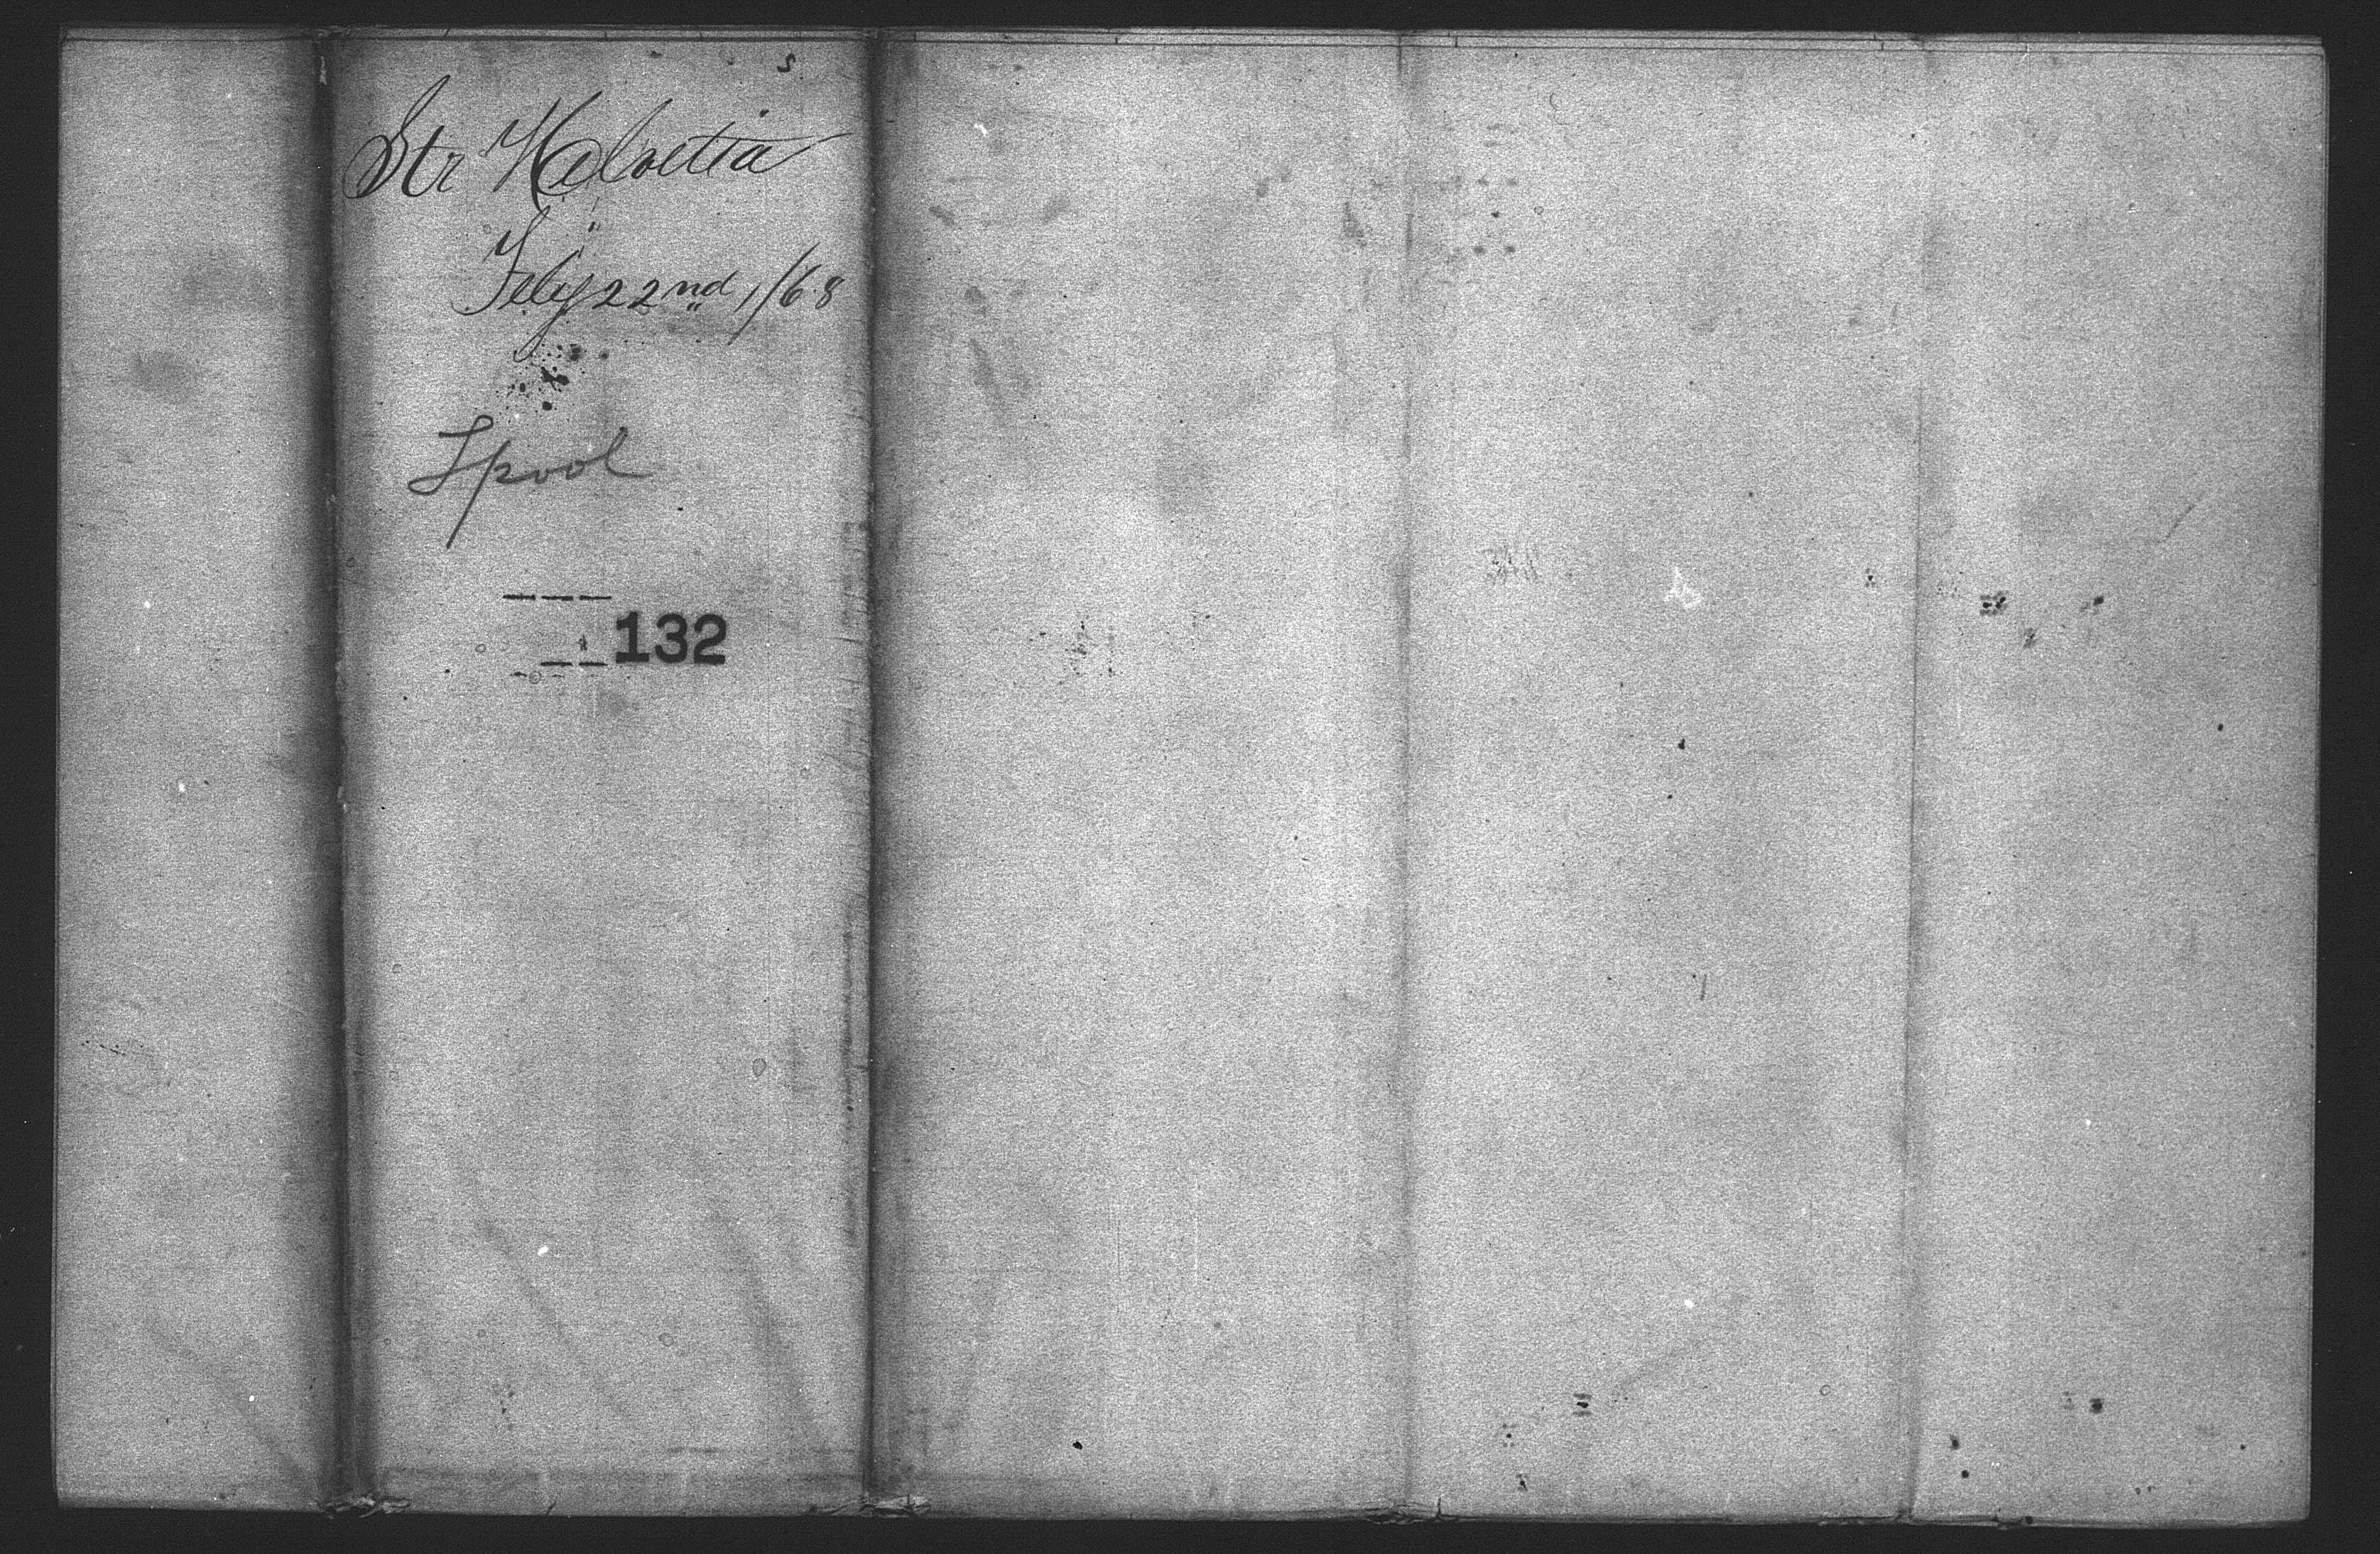 Str Helvetia
Feby 22nd 1/68
Lpool
132